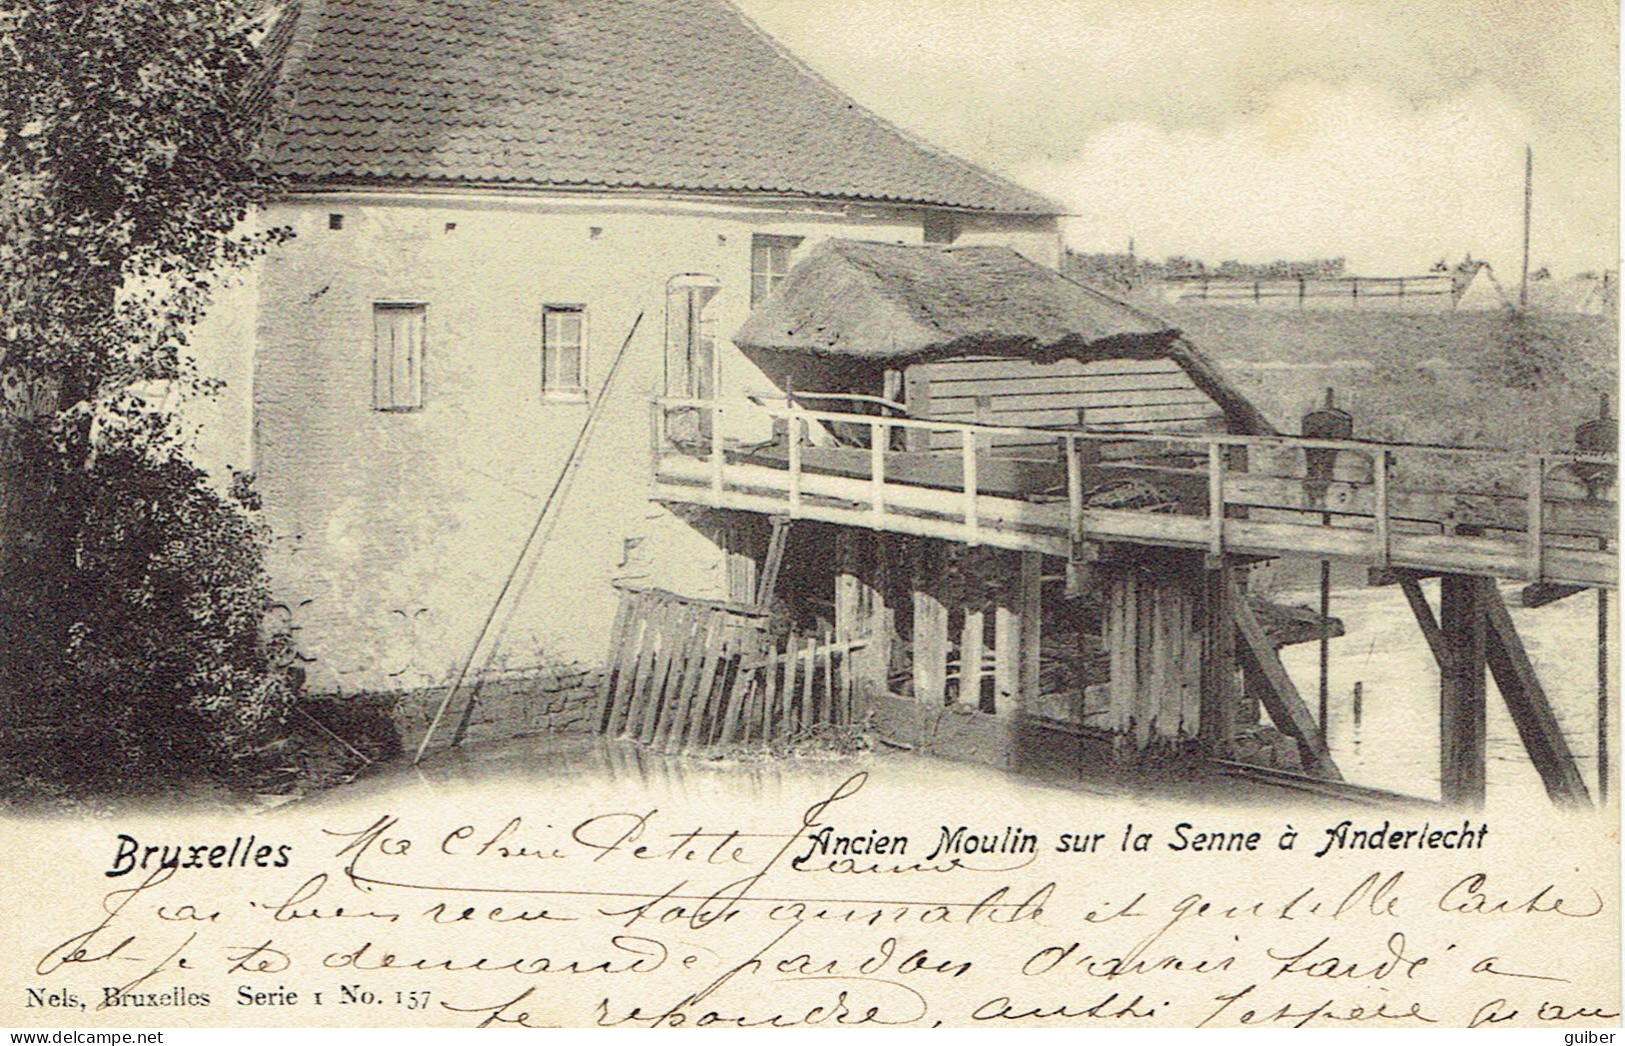 Bruxelles
Ancien Moulin sur la Senne à Anderlecht
Ma Chère Petite Jeanne
J'ai bien recu ton aimable et gentille Carte
et je te demande pardon d'avoir tardé a
te repondre, aussi j'espère qu'au
Nels, Bruxelles Serie 1 No. 157
delcampe.net
guiber